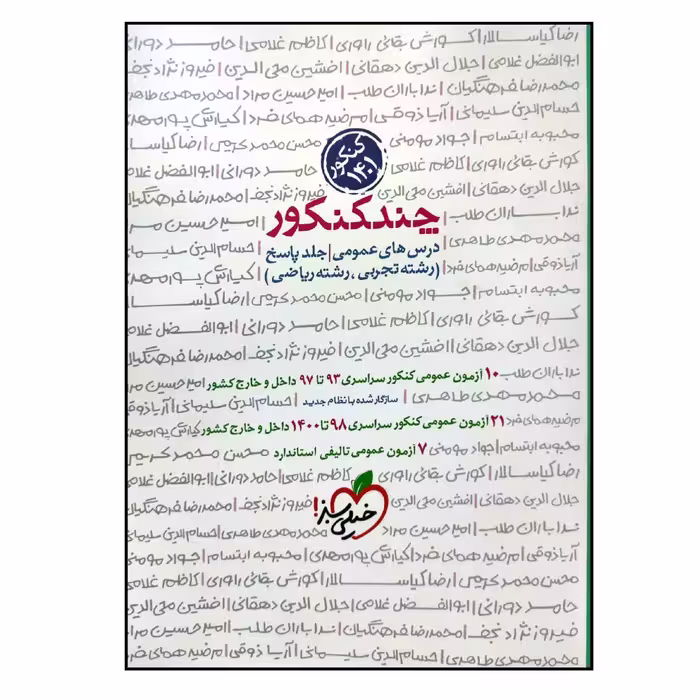 رضا کیاسالار | کورش بقائی راوری | کاظم غلامی | حامد دورانی
ابوالفضل غلامی | جلال الدین دهقانی | افشین محی الدین | فیروز نژاد نجف
محمدرضا فرهنگیان | ندا باران طلب | امیرحسین مراد | محمدمهدی طاهری
حسام الدین سلیمانی | آریا ذوقی | مرضیه همای فرد | کیارش پورمهدی
محبوبه ابتسام | جواد مومنی | محسن محمدکریمی | رضا کیاسا
کورش بقائی راوری | کاظم غلامی | حامد دورانی | ابوالفضل غلامی
جلال الدین دهقانی | افشین محی الدین | فیروز نژاد نجف | محمدرضا فرهنگیان
کنکور
۱۴۰۱
چند کنکور
ندا باران طلب | امیرحسین مر
درس های عمومی | جلد پاسخ
محمدمهدی طاهری | حسام الدین سلیمانی
(رشته تجربی، رشته ریاضی)
آریا ذوقی | مرضیه همای فرد | کیارش پورمهدی
محبوبه ابتسام | جواد مومنی | محسن محمدکریمی | رضا کیاسا
کورش بقائی راوری | کاظم غلامی | حامد دورانی | ابوالفضل غلامی
جلال الدین دهقانی | افشین محی الدین | فیروز نژاد نجف | محمدرضا فرهنگیان
ندا باران طلب ۱۰ آزمون عمومی کنکور سراسری ۹۳ تا ۹۷ داخل و خارج کشور امیرحسین مر
محمدمهدی طاهری | سازگار شده با نظام جدید | حسام الدین سلیمانی | آریا ذوقی
مرضیه همای فرد ۲۱ آزمون عمومی کنکور سراسری ۹۸ تا ۱۴۰۰ داخل و خارج کشور کیارش پور
محبوبه ابتسام | جواد مومنی ۷ آزمون عمومی تالیفی استاندارد محسن محمدکریم
رضا کیاسالار | کورش بقائی راوری | کاظم غلامی | حامد دورانی | ابوالفضل غلامی
جلال الدین دهقانی | افشین محی الدین | فیروز نژاد نجف | محمدرضا فرهنگیان
خیلی سبز!
ندا باران طلب | امیرحسین مراد | محمدمهدی طاهری | حسام الدین سلیمانی
آریا ذوقی | مرضیه همای فرد | کیارش پورمهدی | محبوبه ابتسام | جواد مومنی
محسن محمدکریمی | رضا کیاسالار | کورش بقائی راوری | کاظم غلامی
حامد دورانی | ابوالفضل غلامی | جلال الدین دهقانی | افشین محی الدین
فیروز نژاد نجف | محمدرضا فرهنگیان | ندا باران طلب | امیرحسین مرا
محمدمهدی طاهری | حسام الدین سلیمانی | آریا ذوقی | مرضیه همای فرد